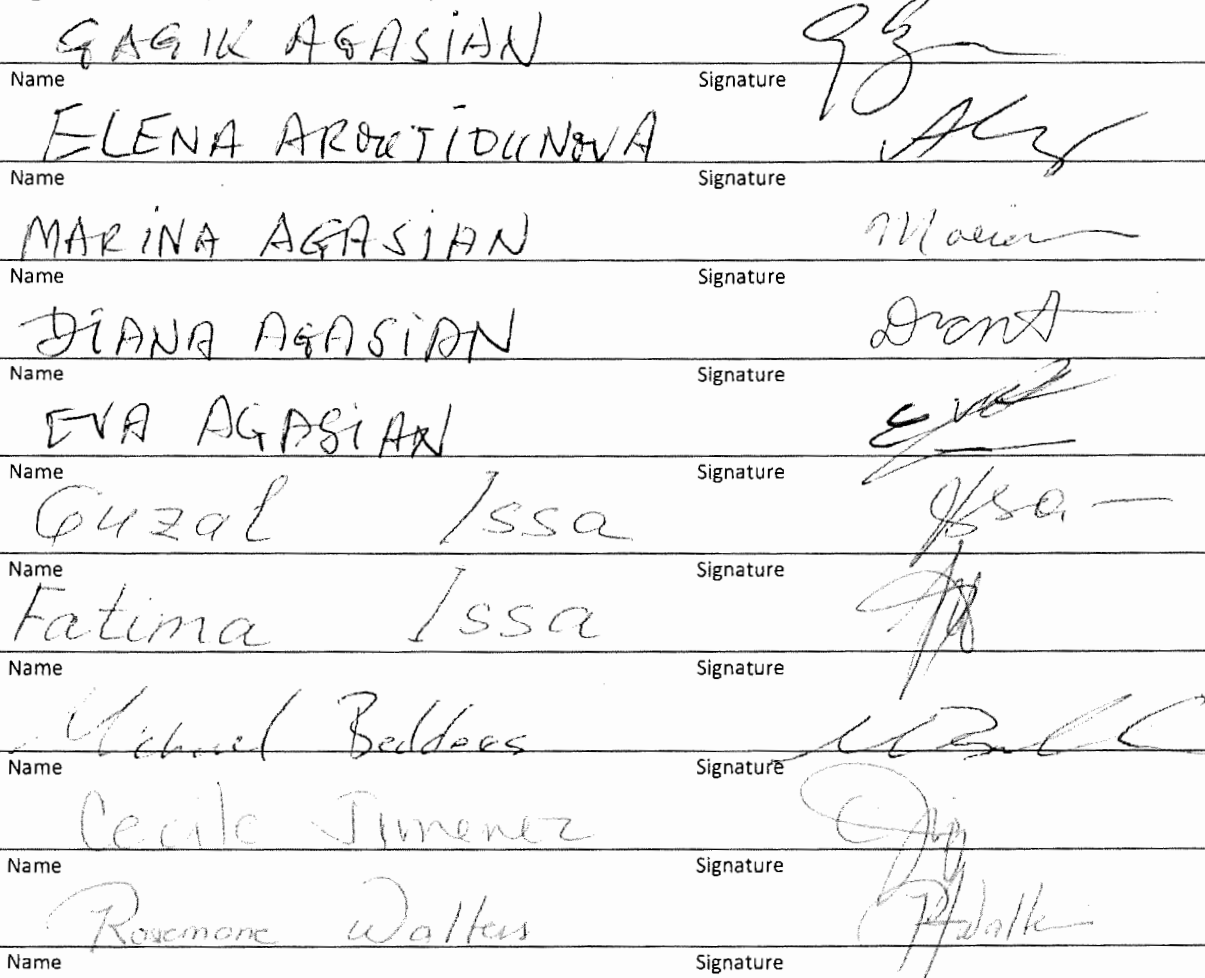 GAGIK AGASIAN
Name Signature
ELENA
Name Signature
MARINA AGASIAN Marina
Name Signature
DIANA AGASIAN
Name Signature
EVA AGASIAN Eva
Name Signature
Guzal Issa Issa
Name Signature
Fatima Issa
Name Signature
Michael Beddoes
Name Signature
Cecile Jimenez
Name Signature
Rosemarie Walters
Name Signature